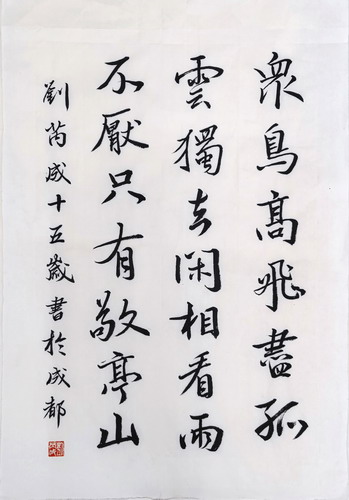 衆鳥髙飛盡孤
雲獨去閑相看兩
不厭只有敬亭山
劉芮成十五歲書於成都